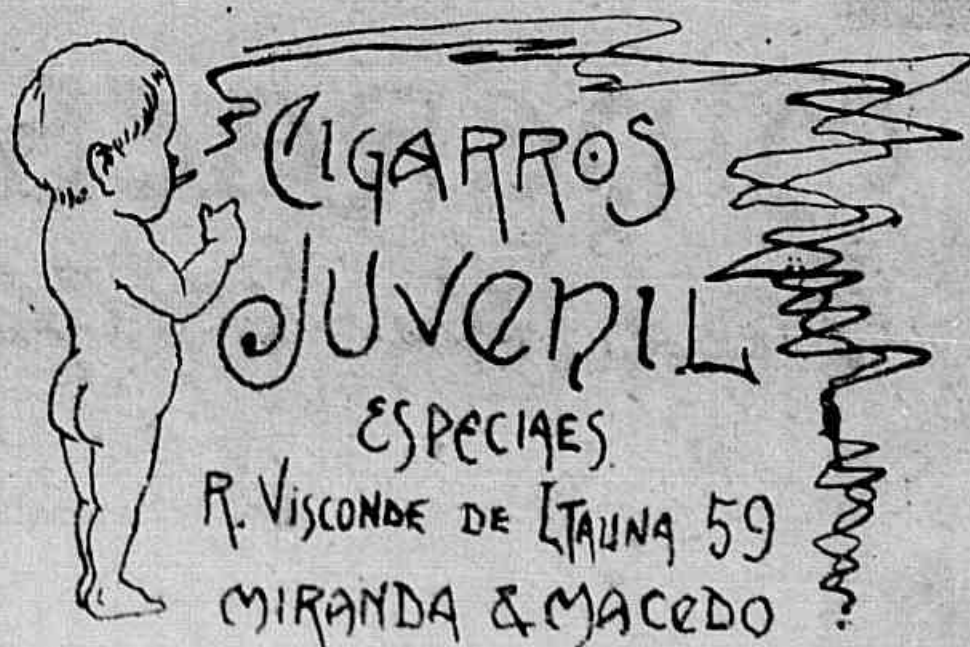 CIGARROS
JUVENIL
ESPECIAES
R. VISCONDE DE ITAUNA 59
MIRANDA & MACEDO